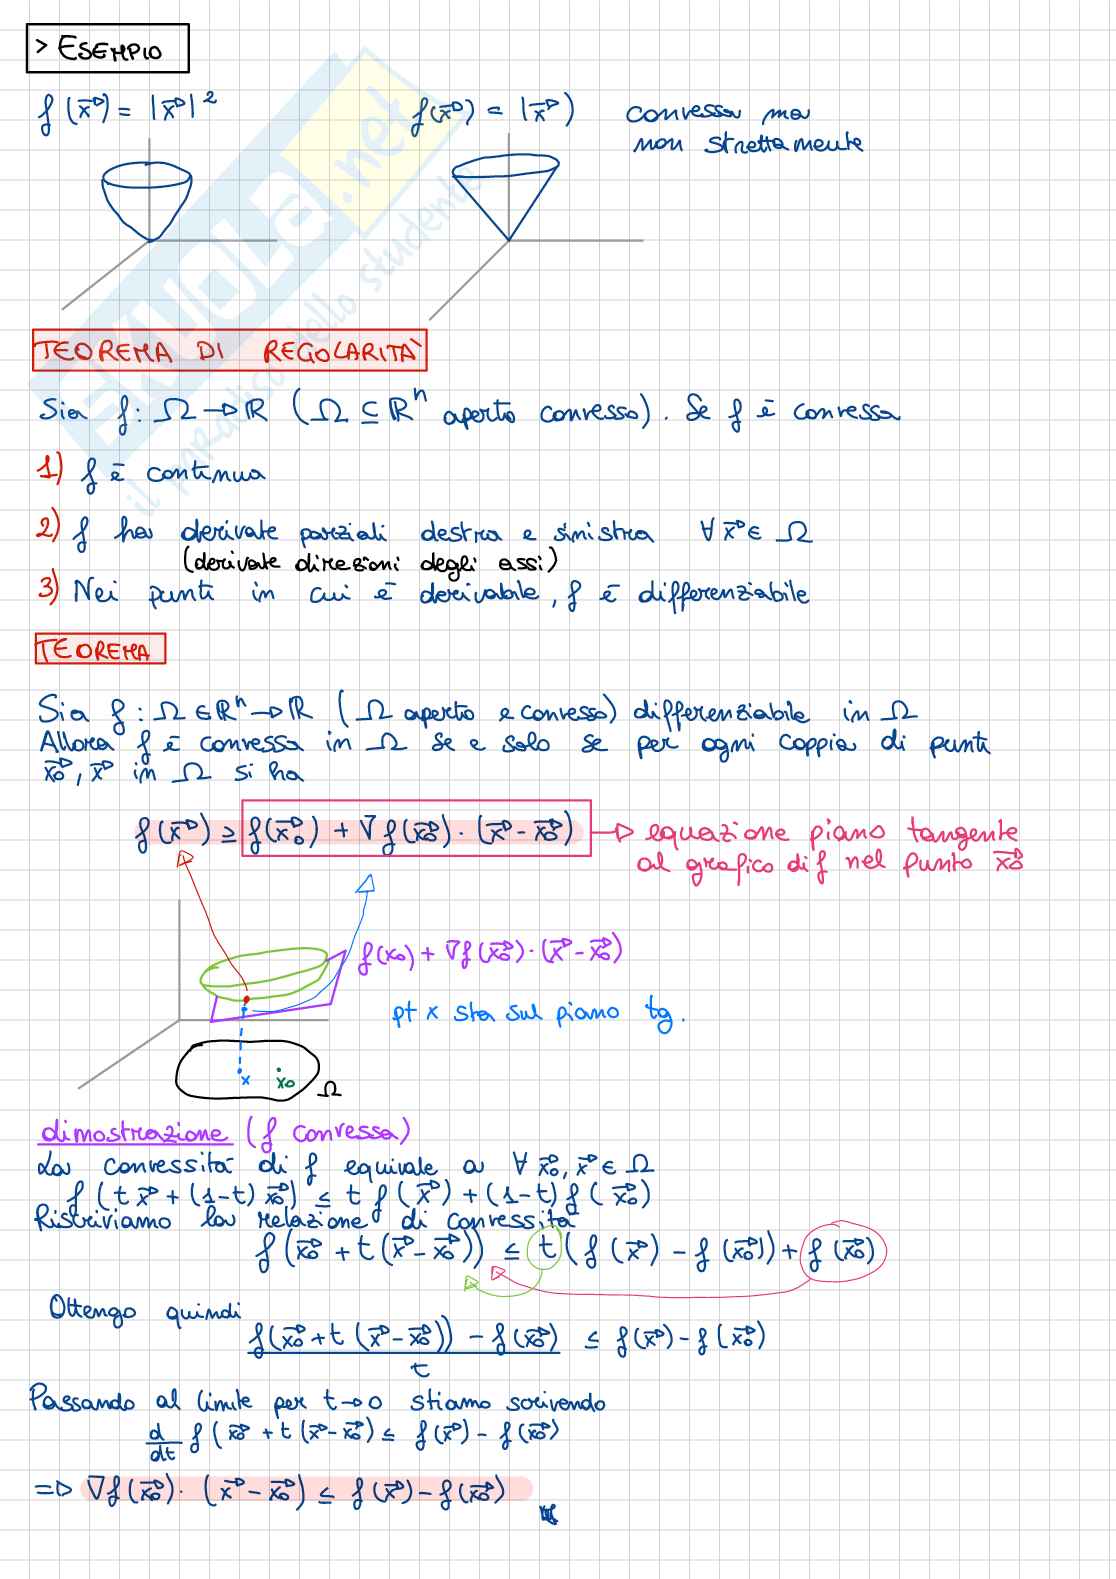 > ESEMPIO
f(x⃗) = |x⃗|² f(x⃗) = |x⃗| convessa ma
non strettamente
SKUOLA.net
il paradiso dello studente
TEOREMA DI REGOLARITÀ
Sia f: Ω → ℝ (Ω ⊆ ℝⁿ aperto convesso). Se f è convessa
1) f è continua
2) f ha derivate parziali destra e sinistra ∀ x⃗ ∈ Ω
(derivate direzioni degli assi)
3) Nei punti in cui è derivabile, f è differenziabile
TEOREMA
Sia f: Ω ∈ ℝⁿ → ℝ (Ω aperto e convesso) differenziabile in Ω
Allora f è convessa in Ω se e solo se per ogni coppia di punti
x⃗₀, x⃗ in Ω si ha
f(x⃗) ≥ f(x⃗₀) + ∇f(x⃗₀)·(x⃗ - x⃗₀) → equazione piano tangente
al grafico di f nel punto x⃗₀
f(x₀) + ∇f(x⃗₀)·(x⃗ - x⃗₀)
pt x sta sul piano tg.
x x₀ Ω
dimostrazione (f convessa)
La convessità di f equivale a ∀ x⃗₀, x⃗ ∈ Ω
f(t x⃗ + (1-t) x⃗₀) ≤ t f(x⃗) + (1-t) f(x⃗₀)
Riscriviamo la relazione di convessità
f(x⃗₀ + t(x⃗ - x⃗₀)) ≤ t(f(x⃗) - f(x⃗₀)) + f(x⃗₀)
Ottengo quindi
f(x⃗₀ + t(x⃗ - x⃗₀)) - f(x⃗₀) ≤ f(x⃗) - f(x⃗₀)
t
Passando al limite per t→0 stiamo scrivendo
d/dt f(x⃗₀ + t(x⃗ - x⃗₀) ≤ f(x⃗) - f(x⃗₀)
⇒ ∇f(x⃗₀)·(x⃗ - x⃗₀) ≤ f(x⃗) - f(x⃗₀)